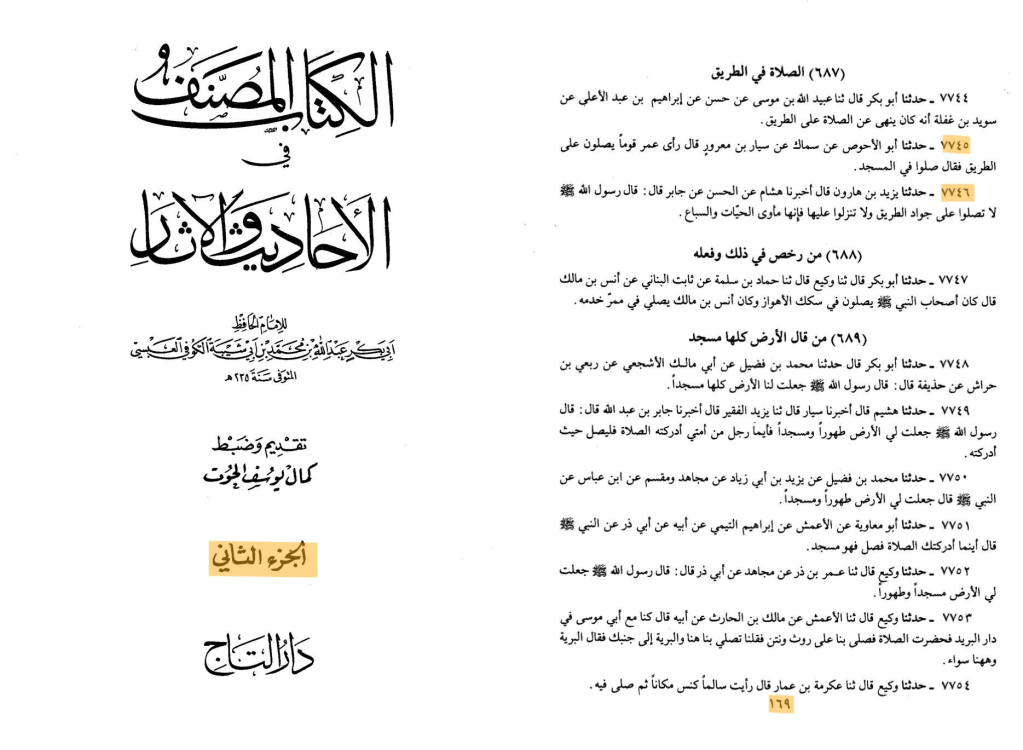 الكتاب المصنف
في
الأحاديث والآثار
للإمام الحافظ
أبي بكر عبد الله بن محمد بن أبي شيبة الكوفي العبسي
المتوفى سنة ٢٣٥ هـ
تقديم وضبط
كمال يوسف الحوت
الجزء الثاني
دار التاج
(٦٨٧) الصلاة في الطريق
٧٧٤٤ ـ حدثنا أبو بكر قال ثنا عبيد الله بن موسى عن حسن عن إبراهيم بن عبد الأعلى عن
سويد بن غفلة أنه كان ينهى عن الصلاة على الطريق.
٧٧٤٥ ـ حدثنا أبو الأحوص عن سماك عن سيار بن معرورٍ قال رأى عمر قوماً يصلون على
الطريق فقال صلوا في المسجد.
٧٧٤٦ ـ حدثنا يزيد بن هارون قال أخبرنا هشام عن الحسن عن جابر قال: قال رسول الله ﷺ
لا تصلوا على جواد الطريق ولا تنزلوا عليها فإنها مأوى الحيّات والسباع.
(٦٨٨) من رخص في ذلك وفعله
٧٧٤٧ ـ حدثنا أبو بكر قال ثنا وكيع قال ثنا حماد بن سلمة عن ثابت البناني عن أنس بن مالك
قال كان أصحاب النبي ﷺ يصلون في سكك الأهواز وكان أنس بن مالك يصلي في ممرّ خدمه.
(٦٨٩) من قال الأرض كلها مسجد
٧٧٤٨ ـ حدثنا أبو بكر قال حدثنا محمد بن فضيل عن أبي مالك الأشجعي عن ربعي بن
حراش عن حذيفة قال: قال رسول الله ﷺ جعلت لنا الأرض كلها مسجداً.
٧٧٤٩ ـ حدثنا هشيم قال أخبرنا سيار قال ثنا يزيد الفقير قال أخبرنا جابر بن عبد الله قال: قال
رسول الله ﷺ جعلت لي الأرض طهوراً ومسجداً فأيما رجل من أمتي أدركته الصلاة فليصل حيث
أدركته.
٧٧٥٠ ـ حدثنا محمد بن فضيل عن يزيد بن أبي زياد عن مجاهد ومقسم عن ابن عباس عن
النبي ﷺ قال جعلت لي الأرض طهوراً ومسجداً.
٧٧٥١ ـ حدثنا أبو معاوية عن الأعمش عن إبراهيم التيمي عن أبيه عن أبي ذر عن النبي ﷺ
قال أينما أدركتك الصلاة فصل فهو مسجد.
٧٧٥٢ ـ حدثنا وكيع قال ثنا عمر بن ذر عن مجاهد عن أبي ذر قال: قال رسول الله ﷺ جعلت
لي الأرض مسجداً وطهوراً.
٧٧٥٣ ـ حدثنا وكيع قال ثنا الأعمش عن مالك بن الحارث عن أبيه قال كنا مع أبي موسى في
دار البريد فحضرت الصلاة فصلى بنا على روث ونتن فقلنا تصلي بنا هنا والبرية إلى جنبك فقال البرية
وههنا سواء.
٧٧٥٤ ـ حدثنا وكيع قال ثنا عكرمة بن عمار قال رأيت سالماً كنس مكاناً ثم صلى فيه.
١٦٩